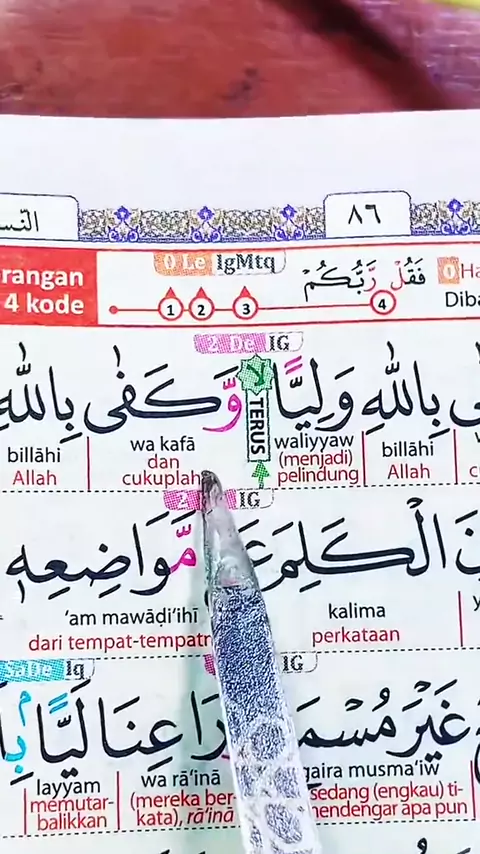 ٨٦
rangan
4 kode
0 Le IgMtq
1 2 3 4
فَقُلْ رَّبُّكُمْ
0
Diba
2 De IG
بِاللّٰهِ وَلِيًّا وَّكَفٰى بِاللّٰهِ
لا
TERUS
billāhi waliyyaw wa kafā billāhi
Allah (menjadi) pelindung dan cukuplah Allah
2 IG
الْكَلِمَ مَّوَاضِعِهٖ
kalima 'am mawāḍi'ihī
perkataan dari tempat-tempatn
IG
Iq
غَيْرَ مُسْمَ رَاعِنَا لَيًّا
gaira musma'iw wa rā'inā layyam
sedang (engkau) ti-
mendengar apa pun
(mereka ber-
kata), rā'inā
memutar-
balikkan